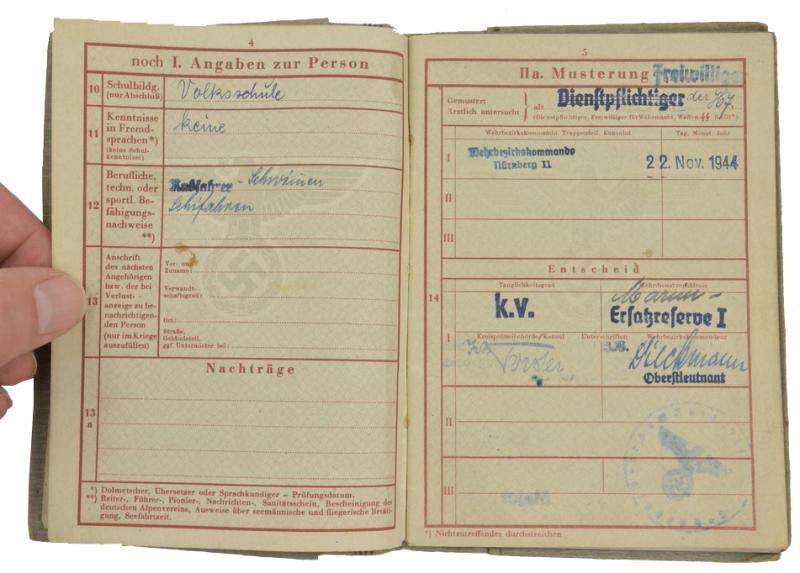 4
noch I. Angaben zur Person
10
Schulbildg.
(nur Abschluß)
Volksschule
11
Kenntnisse
in Fremd-
sprachen*)
(keine Schul-
kenntnisse)
keine
12
Berufliche,
techn. oder
sportl. Be-
fähigungs-
nachweise
**)
Radfahrer - Schwimmen
Schifahren
13
Anschrift
des nächsten
Angehörigen
bzw. der bei
Verlust-
anzeige zu be-
nachrichtigen-
den Person
(nur im Kriege
auszufüllen)
Vor- und
Zuname:
Verwandt-
schaftsgrad:
Ort:
Straße,
Gebäudeteil,
ggf. Untermieter bei:
Nachträge
13
a
*) Dolmetscher, Übersetzer oder Sprachkundiger – Prüfungsdatum.
**) Reiter-, Führer-, Pionier-, Nachrichten-, Sanitätsschein, Bescheinigung des
deutschen Alpenvereins, Ausweise über seemännische und fliegerische Betäti-
gung, Seefahrtzeit.
5
IIa. Musterung Freiwilliger
Gemustert
Ärztlich untersucht
als Dienstpflichtiger der
(Dienstpflichtiger, Freiwilliger für Wehrmacht, Waffen-SS
Wehrbezirkskommando, Truppenteil, Konsulat
Tag, Monat, Jahr
I
Wehrbezirkskommando
Nürnberg II
22. Nov. 1944
II
III
Entscheid
14
Tauglichkeitsgrad
Wehrdienstverhältnis
k.v.
Marine-
Ersatzreserve I
I
Kreispolizeibehörde/Konsul
Unterschriften
Wehrbezirkskommandeur
Oberstleutnant
II
III
*) Nichtzutreffendes durchstreichen